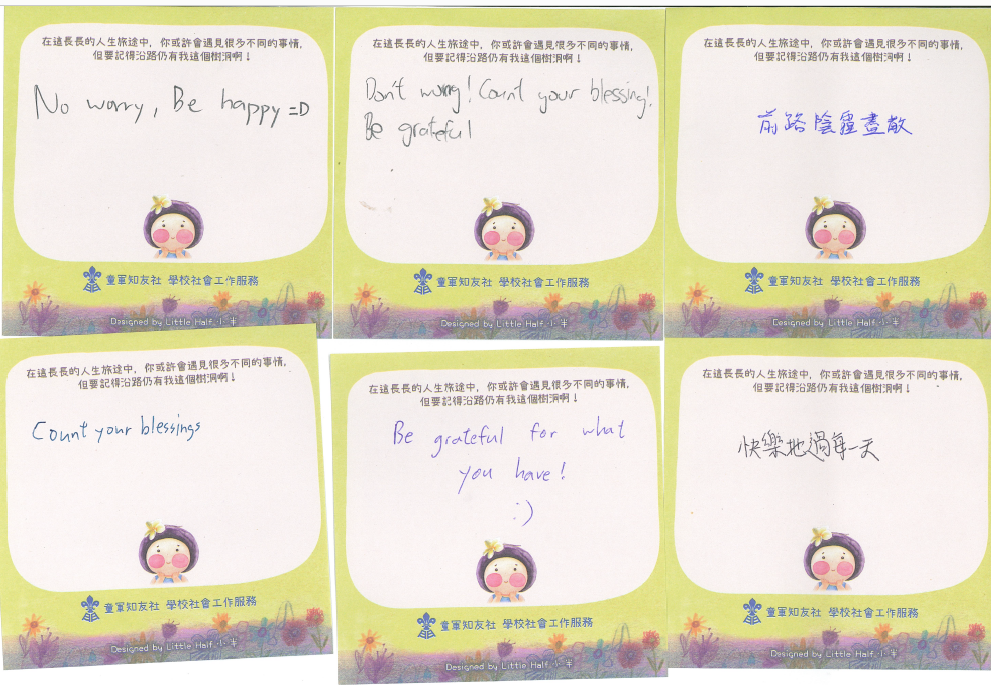 在這長長的人生旅途中，你或許會遇見很多不同的事情，
但要記得沿路仍有我這個樹洞啊！
No worry, Be happy =D
童軍知友社 學校社會工作服務
Designed by Little Half 小半
在這長長的人生旅途中，你或許會遇見很多不同的事情，
但要記得沿路仍有我這個樹洞啊！
Don't worry! Count your blessing!
Be grateful
童軍知友社 學校社會工作服務
Designed by Little Half 小半
在這長長的人生旅途中，你或許會遇見很多不同的事情，
但要記得沿路仍有我這個樹洞啊！
前路陰霾盡散
童軍知友社 學校社會工作服務
Designed by Little Half 小半
在這長長的人生旅途中，你或許會遇見很多不同的事情，
但要記得沿路仍有我這個樹洞啊！
Count your blessings
童軍知友社 學校社會工作服務
Designed by Little Half 小半
在這長長的人生旅途中，你或許會遇見很多不同的事情，
但要記得沿路仍有我這個樹洞啊！
Be grateful for what
you have!
:)
童軍知友社 學校社會工作服務
Designed by Little Half 小半
在這長長的人生旅途中，你或許會遇見很多不同的事情，
但要記得沿路仍有我這個樹洞啊！
快樂地過每一天
童軍知友社 學校社會工作服務
Designed by Little Half 小半